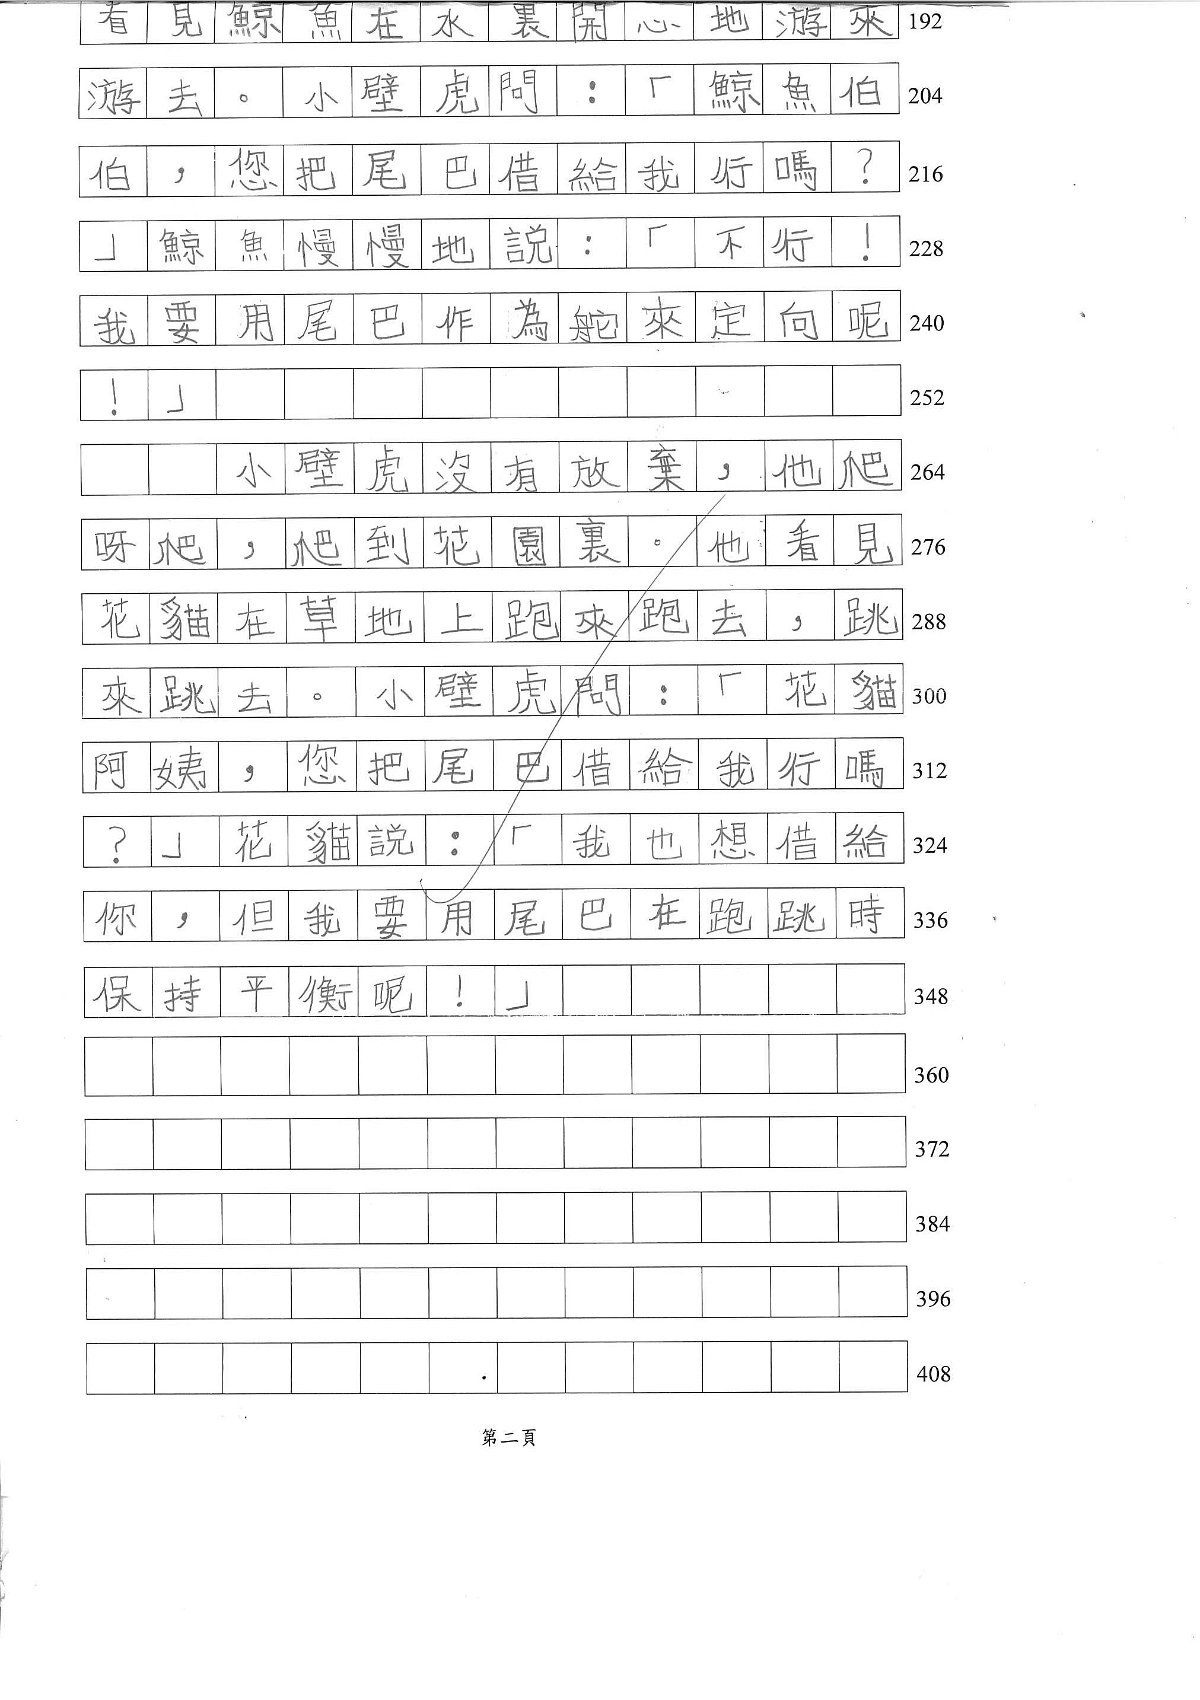 看見鯨魚在水裏開心地游來 192
游去。小壁虎問：「鯨魚伯 204
伯，您把尾巴借給我行嗎？ 216
」鯨魚慢慢地說：「不行！ 228
我要用尾巴作為舵來定向呢 240
！」 252
小壁虎沒有放棄，他爬 264
呀爬，爬到花園裏。他看見 276
花貓在草地上跑來跑去，跳 288
來跳去。小壁虎問：「花貓 300
阿姨，您把尾巴借給我行嗎 312
？」花貓說：「我也想借給 324
你，但我要用尾巴在跑跳時 336
保持平衡呢！」 348
360
372
384
396
408
第二頁